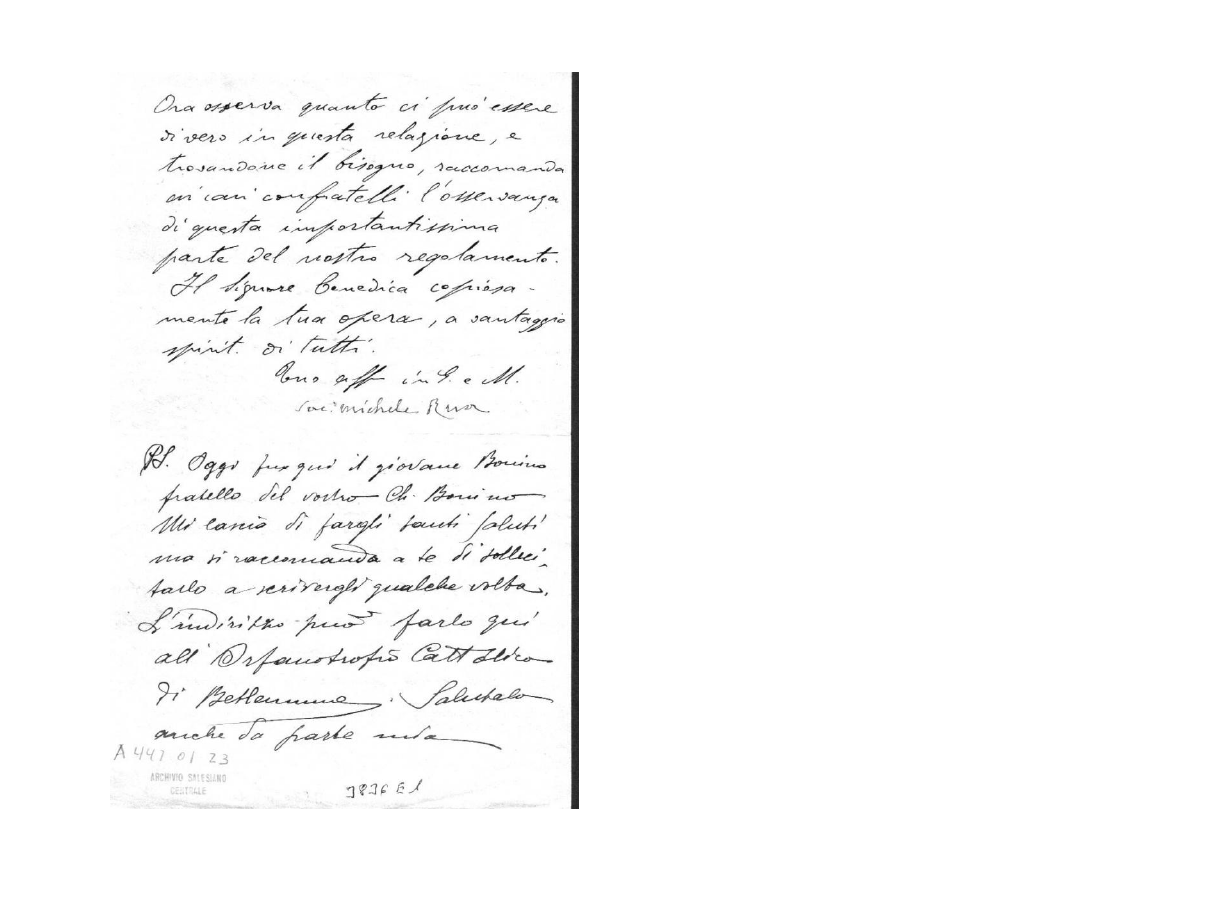 Ora osserva quanto ci può essere
di vero in questa relazione, e
trovandone il bisogno, raccomanda
ai cari confratelli l'osservanza
di questa importantissima
parte del nostro regolamento.
Il Signore benedica copiosa-
mente la tua opera, a vantaggio
spirit. di tutti.
Tuo aff in G. e M.
Sac. Michele Rua
PS. Oggi fu qui il giovane Bonino
fratello del vostro Ch. Bonino
Mi lasciò di fargli tanti saluti
ma si raccomanda a te di solleci-
tarlo a scrivergli qualche volta.
L'indirizzo può farlo qui
all'Orfanotrofio Cattolico
di Betlemme. Salutalo
anche da parte mia
A 447 01 23
ARCHIVIO SALESIANO
CENTRALE
3836 E1